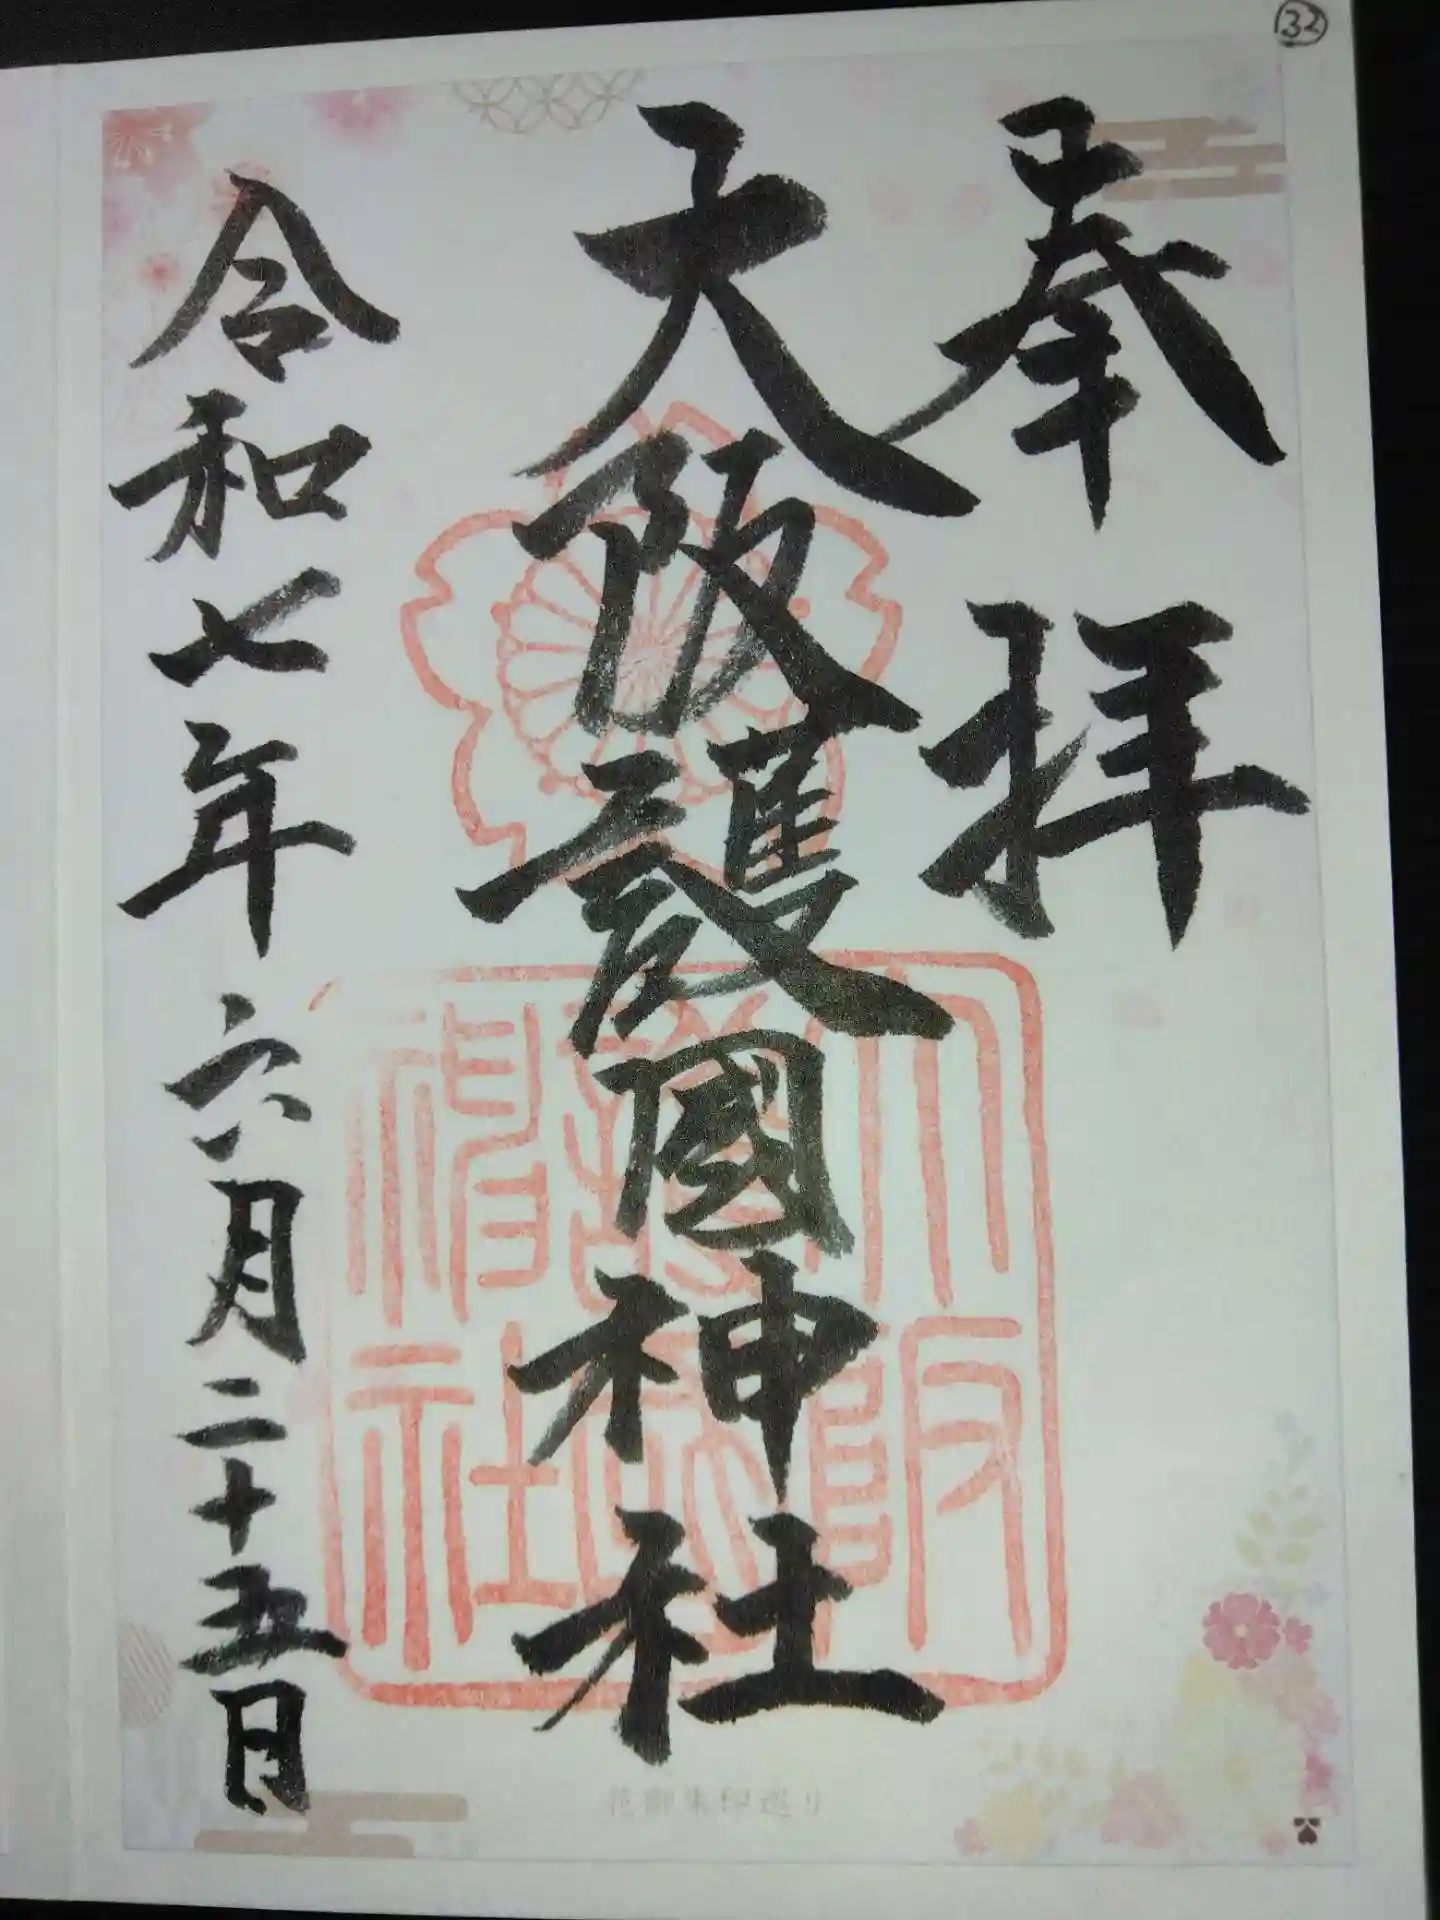 ㉜
奉拝
大阪護國神社
令和七年六月二十五日
大阪
護國
神社
花御朱印巡り